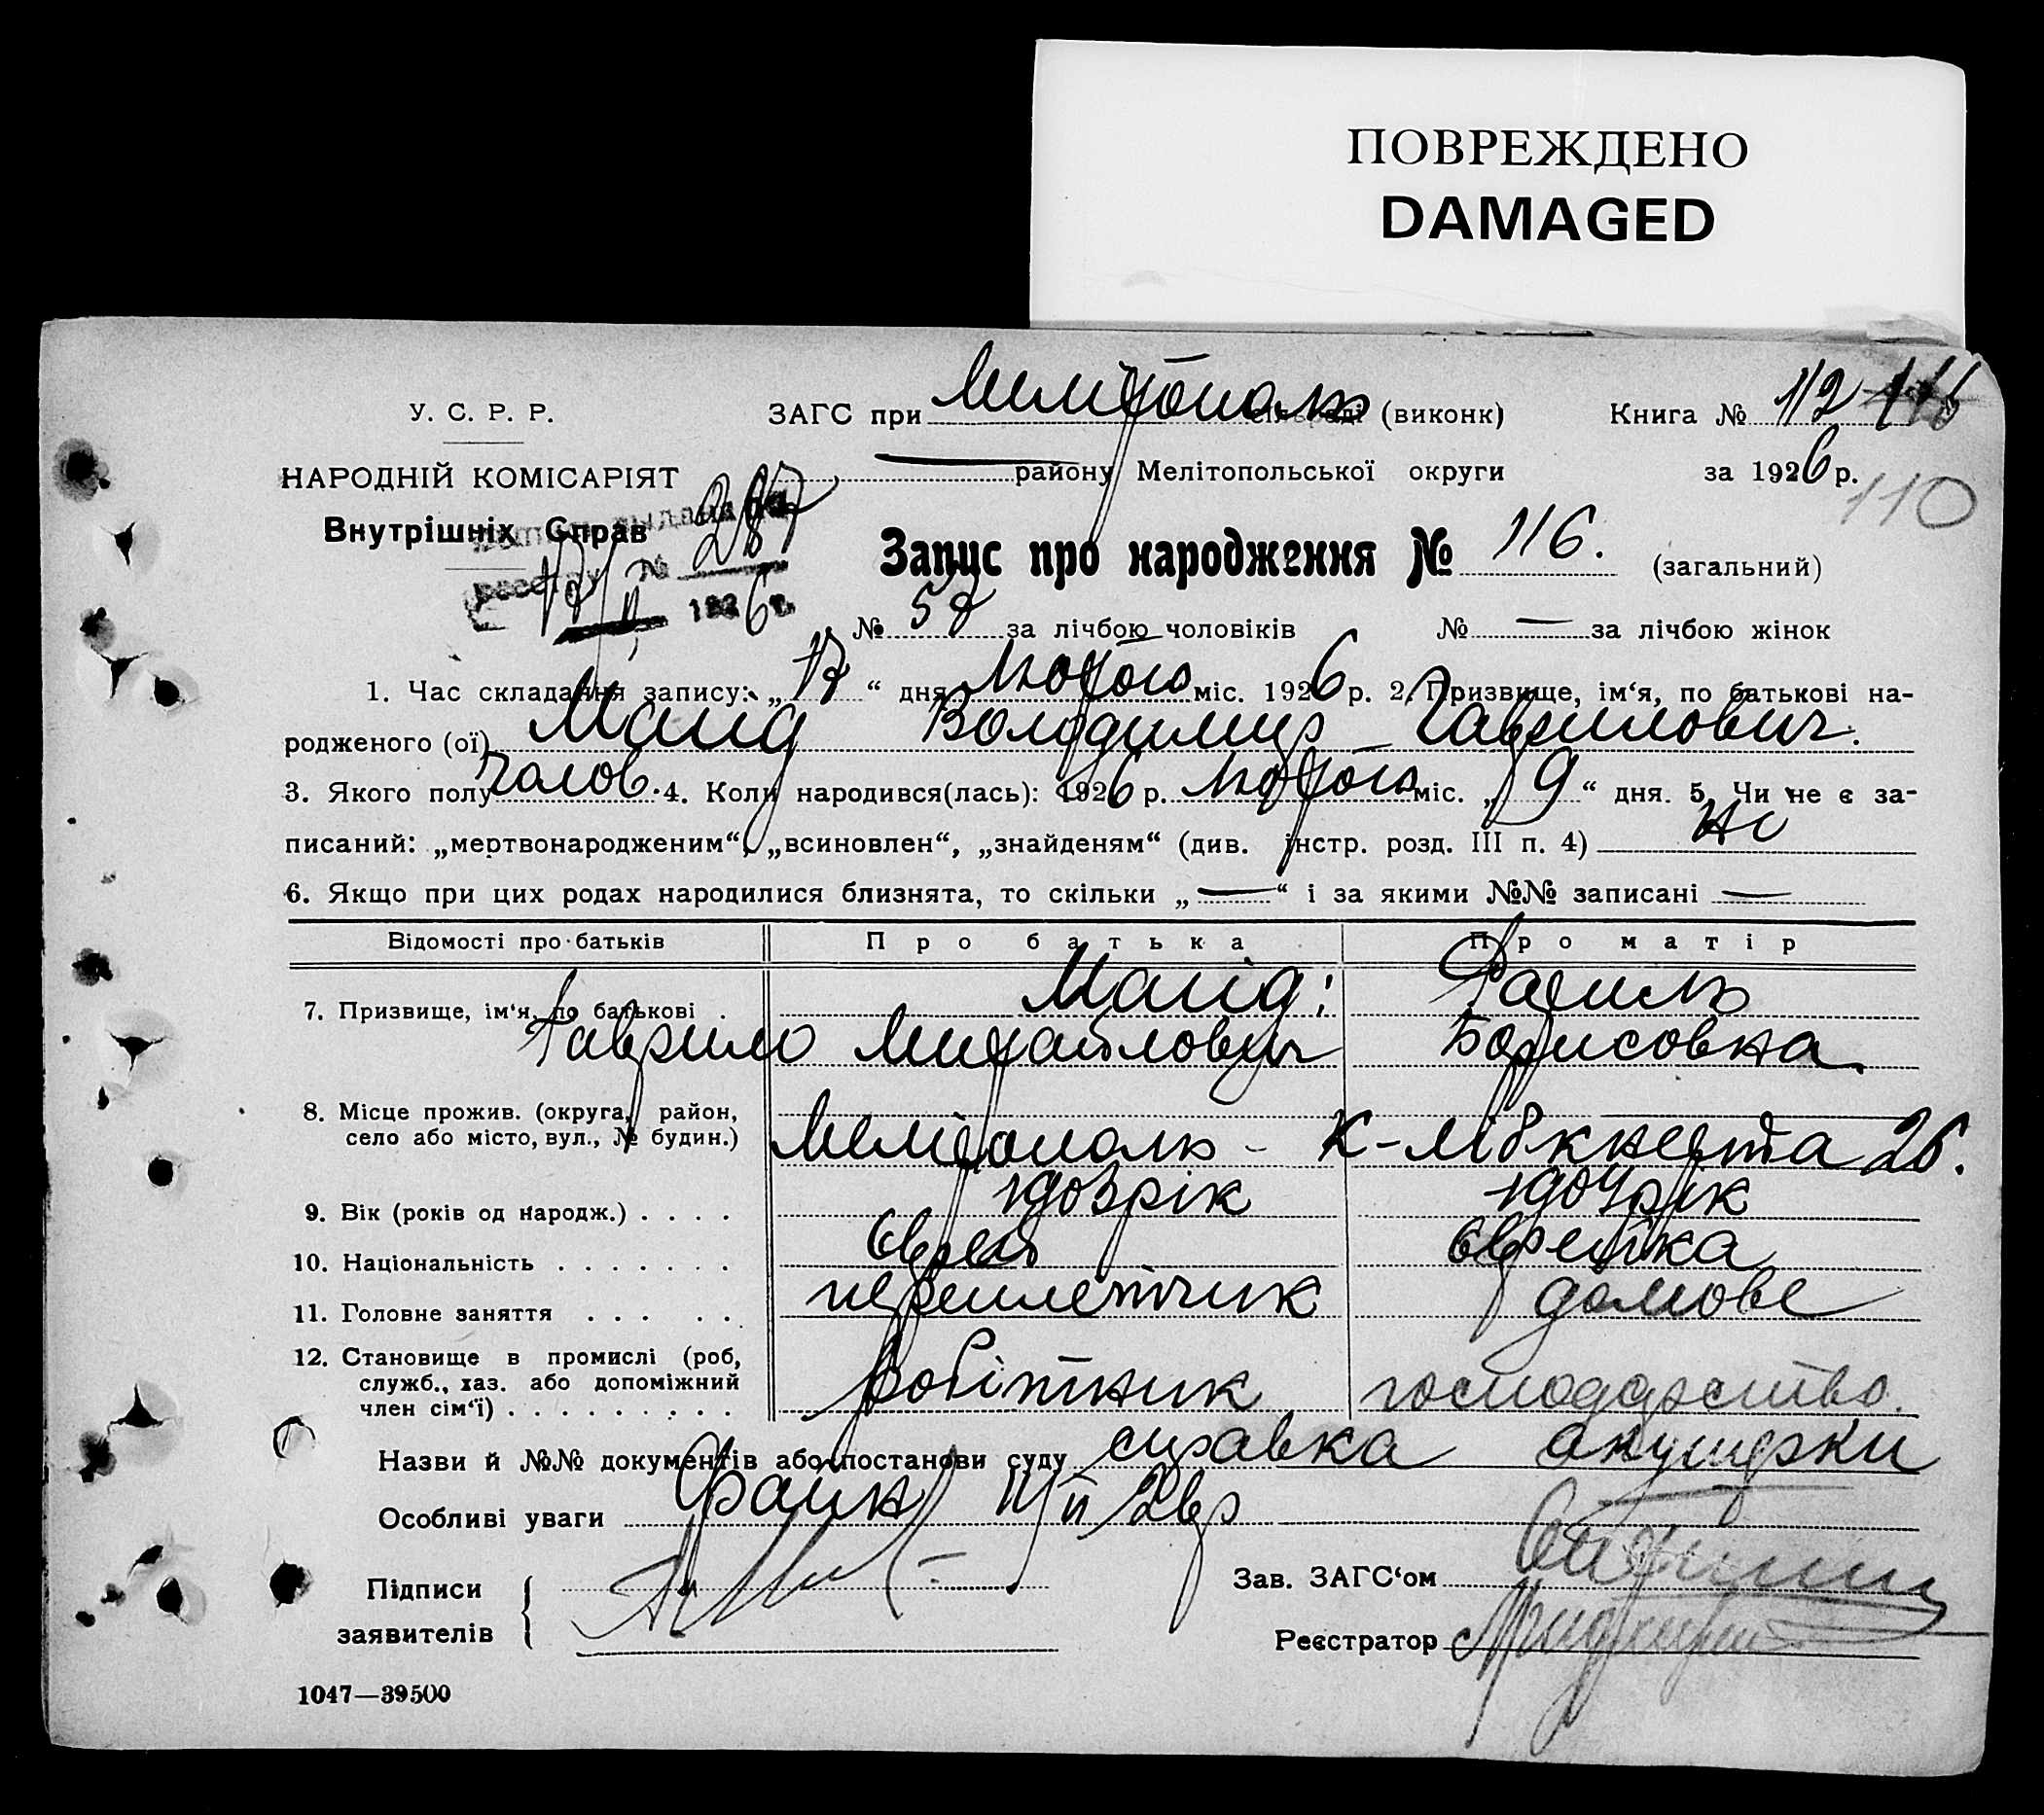 ПОВРЕЖДЕНО
DAMAGED
У. С. Р. Р.
ЗАГС при Мелітополь сільраді (виконк)
Книга № 112 116
НАРОДНІЙ КОМІСАРІЯТ
району Мелітопольської округи
за 1926 р.
110
Внутрішніх Справ
287
реестру №
1926 г.
Запис про народження № 116. (загальний)
№ 57 за лічбою чоловіків № — за лічбою жінок
1. Час складання запису: „17“ дня Лютого міс. 1926 р. 2. Призвище, ім‘я, по батькові на-
родженого (ої) Маид Володимир Гаврилович.
3. Якого полу чолов. 4. Коли народився(лась): 1926 р. Лютого міс. „9“ дня. 5. Чи не є за-
писаний: „мертвонародженим“, „всиновлен“, „знайденям“ (див. інстр. розд. III п. 4) Ні
6. Якщо при цих родах народилися близнята, то скільки „—“ і за якими №№ записані —
Відомості про батьків Про батька Про матір
7. Призвище, ім‘я, по батькові . Маид: Рахиль
Гаврило Михайлович Борисовна
8. Місце прожив. (округа, район,
село або місто, вул., № будин.) Мелітополь - К-Лібкнехта 26.
9. Вік (років од народж.) . . . . 1903 рік 1904 рік
10. Національність . . . . . . . Єврей Єврейка
11. Головне заняття . . . . . переплетчик домове
12. Становище в промислі (роб,
служб., хаз. або допоміжний
член сім‘ї) . . . . . . . . . робітник господарство.
Назви й №№ документів або постанови суду справка акушерки
Особливі уваги Файн 11/II 26 р
Підписи
заявителів
Зав. ЗАГС‘ом
Реєстратор
1047—39500